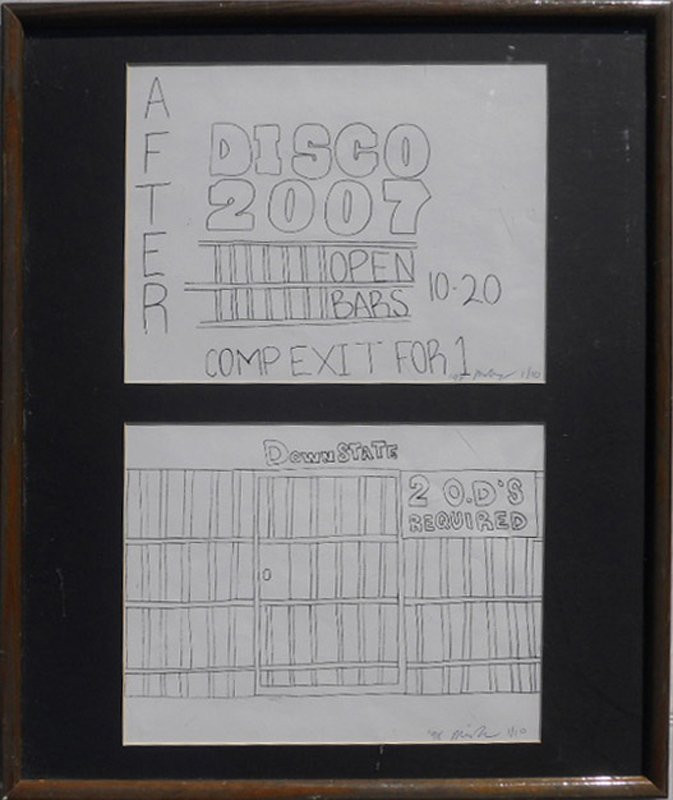 AFTER
DISCO
2007
OPEN
BARS
10-20
COMP EXIT FOR 1
1/10
DOWNSTATE
2 O.D'S
REQUIRED
'98
1/10